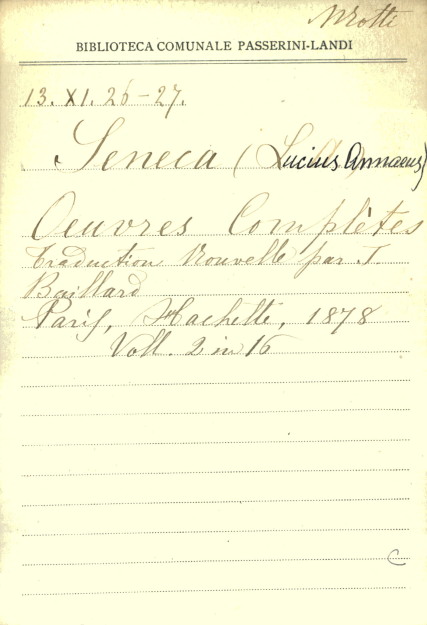 Mrotti
BIBLIOTECA COMUNALE PASSERINI-LANDI
13. XI. 26-27.
Seneca (Lucius Annaeus)
Oeuvres Complètes
Traduction Nouvelle par J.
Baillard
Paris, Hachette, 1878
Voll. 2 in 16
C